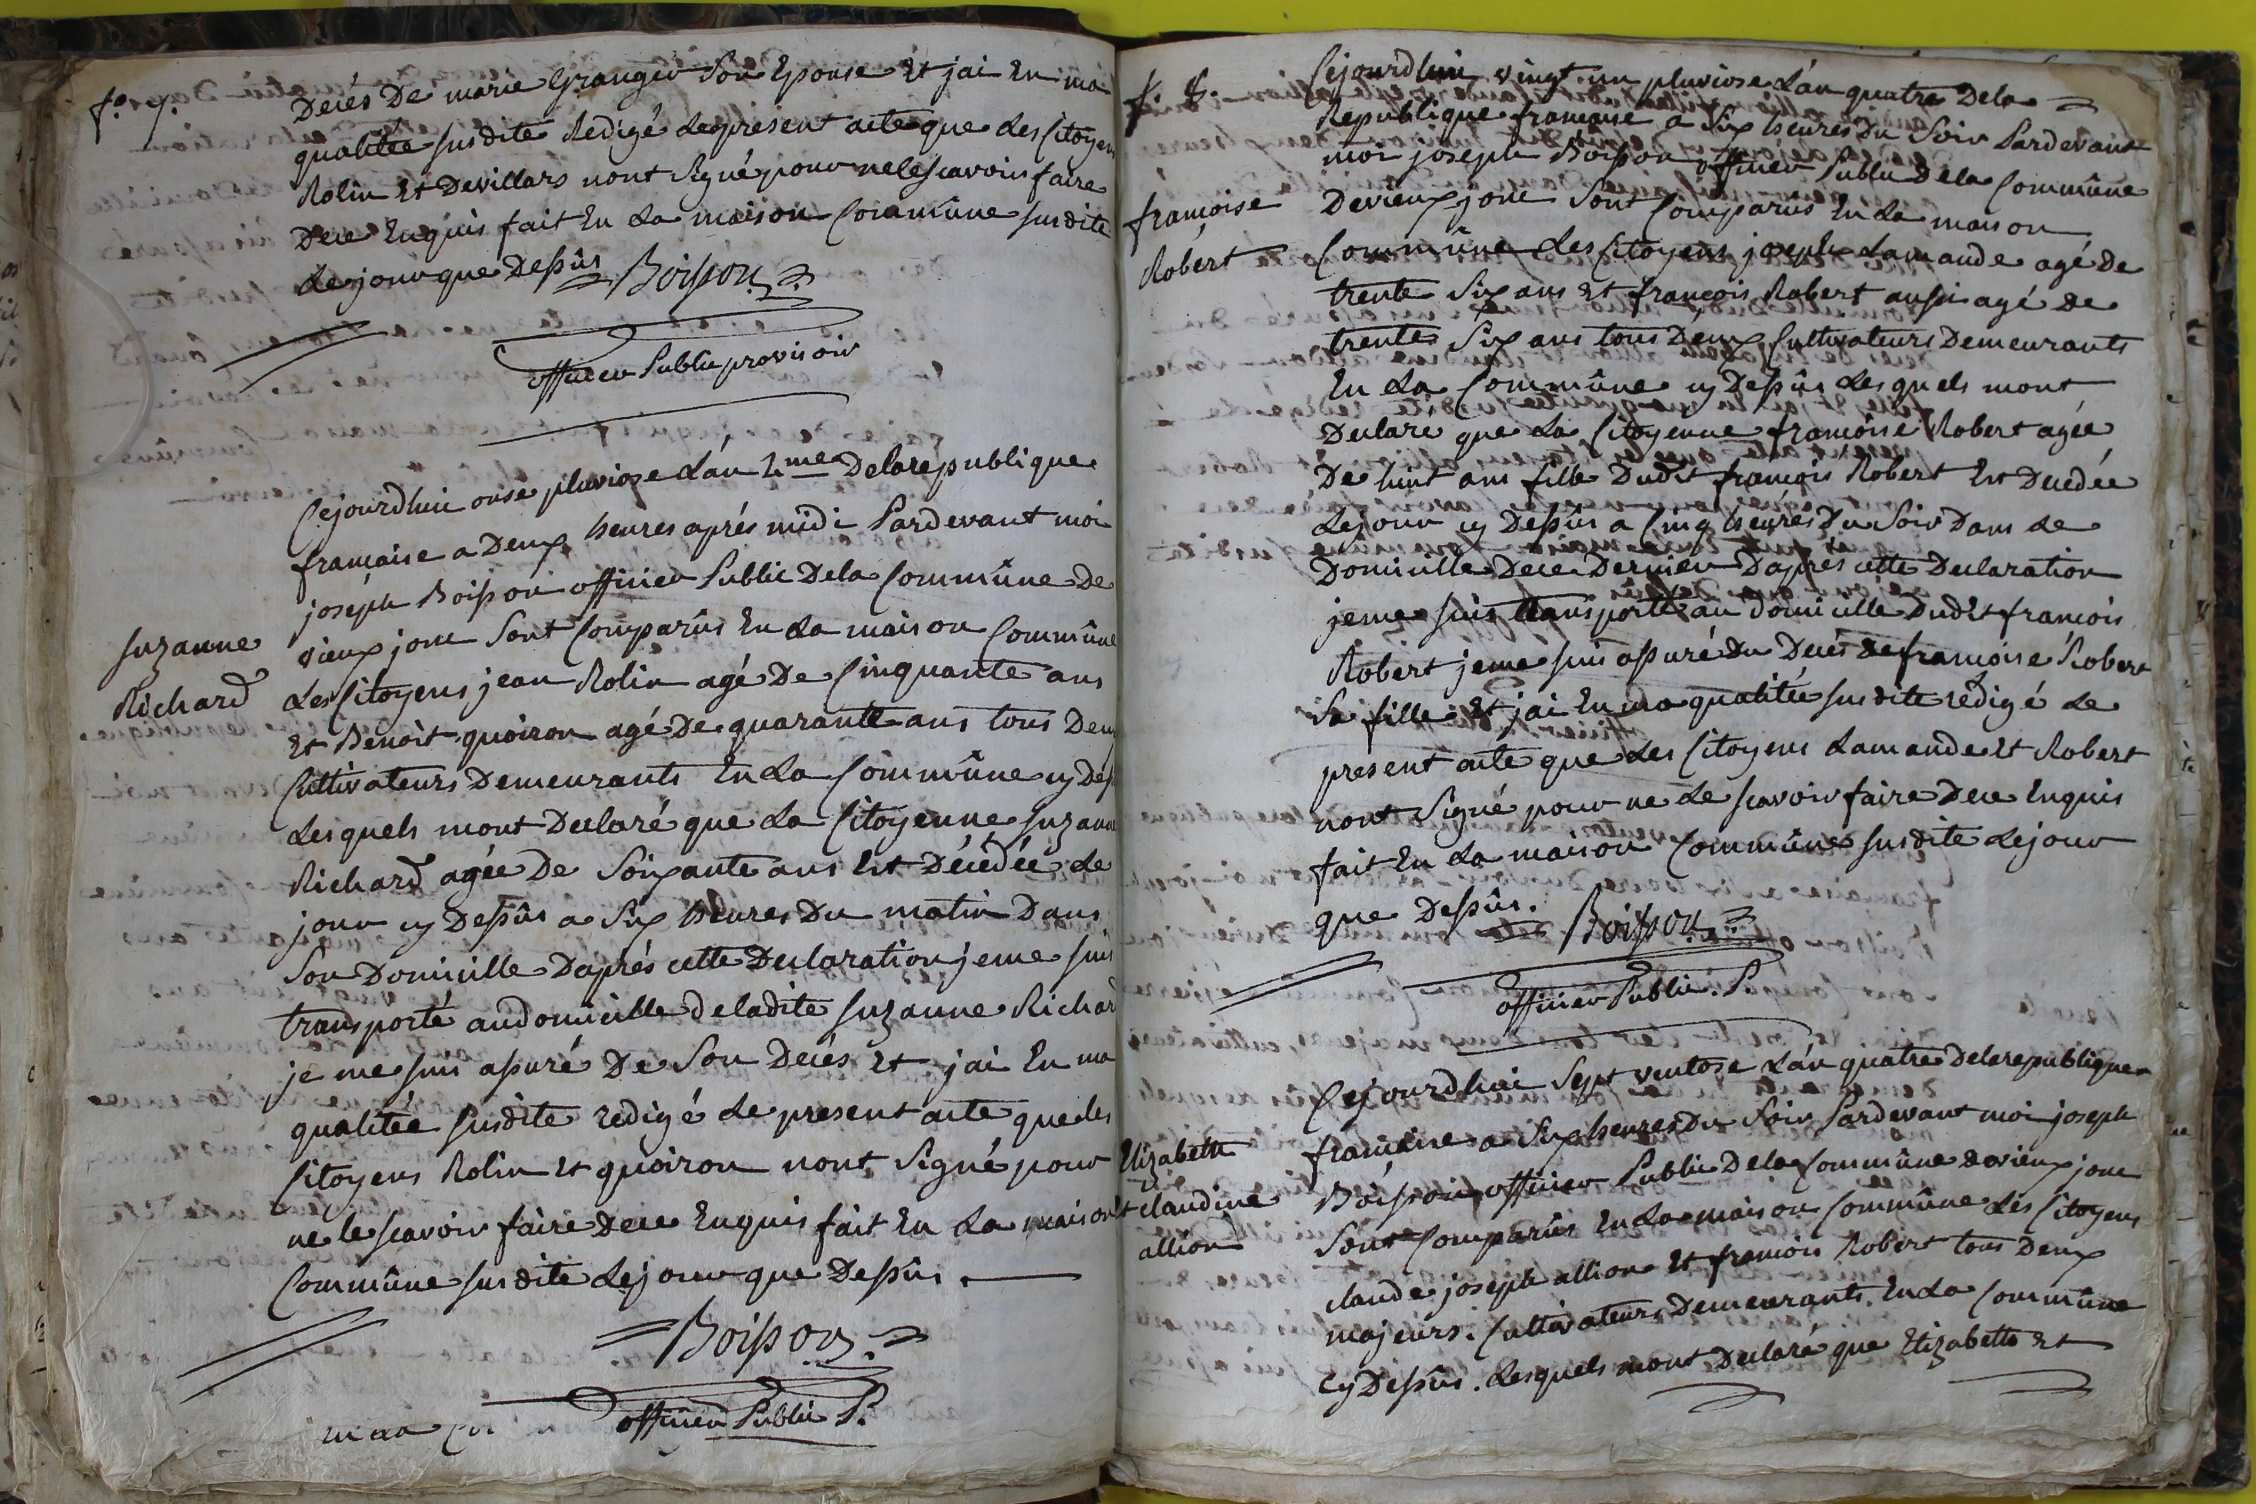 fo. 7.
Decés De marie Granger Son Epouse Et jai En ma
qualitée susdite Redigé Le present acte que Les Citoyens
Rolin Et Devillars nont Signé pour ne le scavoir faire
Dece Enquis fait En La maison Commûne susdite
Le jour que Dessûs Boisson
officier Public provisoir
Cejourdhui onse pluviose L'an 4me De la republique
francaise a Deux heures aprés midi Pardevant moi
joseph Boisson officier Public De la Commûne de
vieux jouc Sont Comparûs En La maison Commûne
suzanne
Richard
Les Citoyens jean Rolin agé De Cinquante ans
Et Benoit quoiron agé De quarante ans tous Deux
Cultivateurs Demeurants En La Commûne cy Des
Lesquels mont Declaré que La Citoyenne suzanne
Richard agée De Soixante ans Est Décédée Le
jour cy Dessûs a Six heures Du matin Dans
Son Domicille D'aprés cette Declaration je me suis
transporté au domicille de ladite suzanne Richard
je me suis assuré De Son Decés Et jai En ma
qualitée susdite redigé Le present acte que les
Citoyens Rolin Et quoiron nont Signé pour
ne le scavoir faire Dece Enquis fait En La maison
Commûne susdite Le jour que Dessûs.
Boisson
officier Public P.
f. 8.
Cejourdhui vingt un pluviose L'an quatre De la
Republique francaise a Six heures Du Soir Pardevant
moi joseph Boisson officier Public De la Commûne
françoise
Robert
De vieux jouc Sont Comparûs En La maison
Commûne Les Citoyens joseph Lamande agé De
trente Six ans Et françois Robert aussi agé de
trente Six ans tous Deux Cultivateurs Demeurants
En La Commûne cy Dessûs Lesquels mont
Declaré que La Citoyenne francoise Robert agée
De huit ans fille Dudit francois Robert Est Decedée
Le jour cy Dessûs a Cinq heures Du Soir Dans Le
Domicille De ce Dernier D'aprés cette Declaration
je me suis transporté au Domicille Dudit francois
Robert je me suis assuré Du Decés de francoise Robert
Sa fille Et jai En ma qualitée susdite redigé Le
present acte que Les Citoyens Lamande Et Robert
nont Signé pour ne Le scavoir faire Dece Enquis
fait En La maison Commûne susdite Le jour
que Dessûs. Boisson
officier Public. P.
Cejourdhui Sept ventose L'an quatre De la republique
francaise a Six heures Du Soir Pardevant moi joseph
Elizabette
Et claudine
allion
Boisson officier Public De la Commûne de vieux jouc
Sont Comparûs En La maison Commûne Les Citoyens
claude joseph allion Et francois Robert tous Deux
majeurs. Cultivateurs Demeurants En La Commûne
cy Dessûs. Lesquels mont Declaré que Elizabette Et